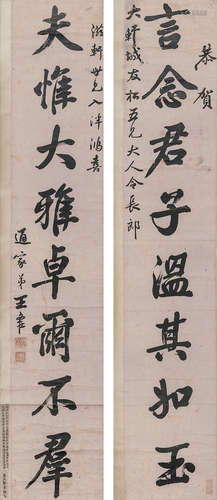 恭賀
言念君子溫其如玉
大軒城友松五兄大人令長郎
滋軒世兄入泮鴻喜
夫惟大雅卓爾不羣
通家弟王